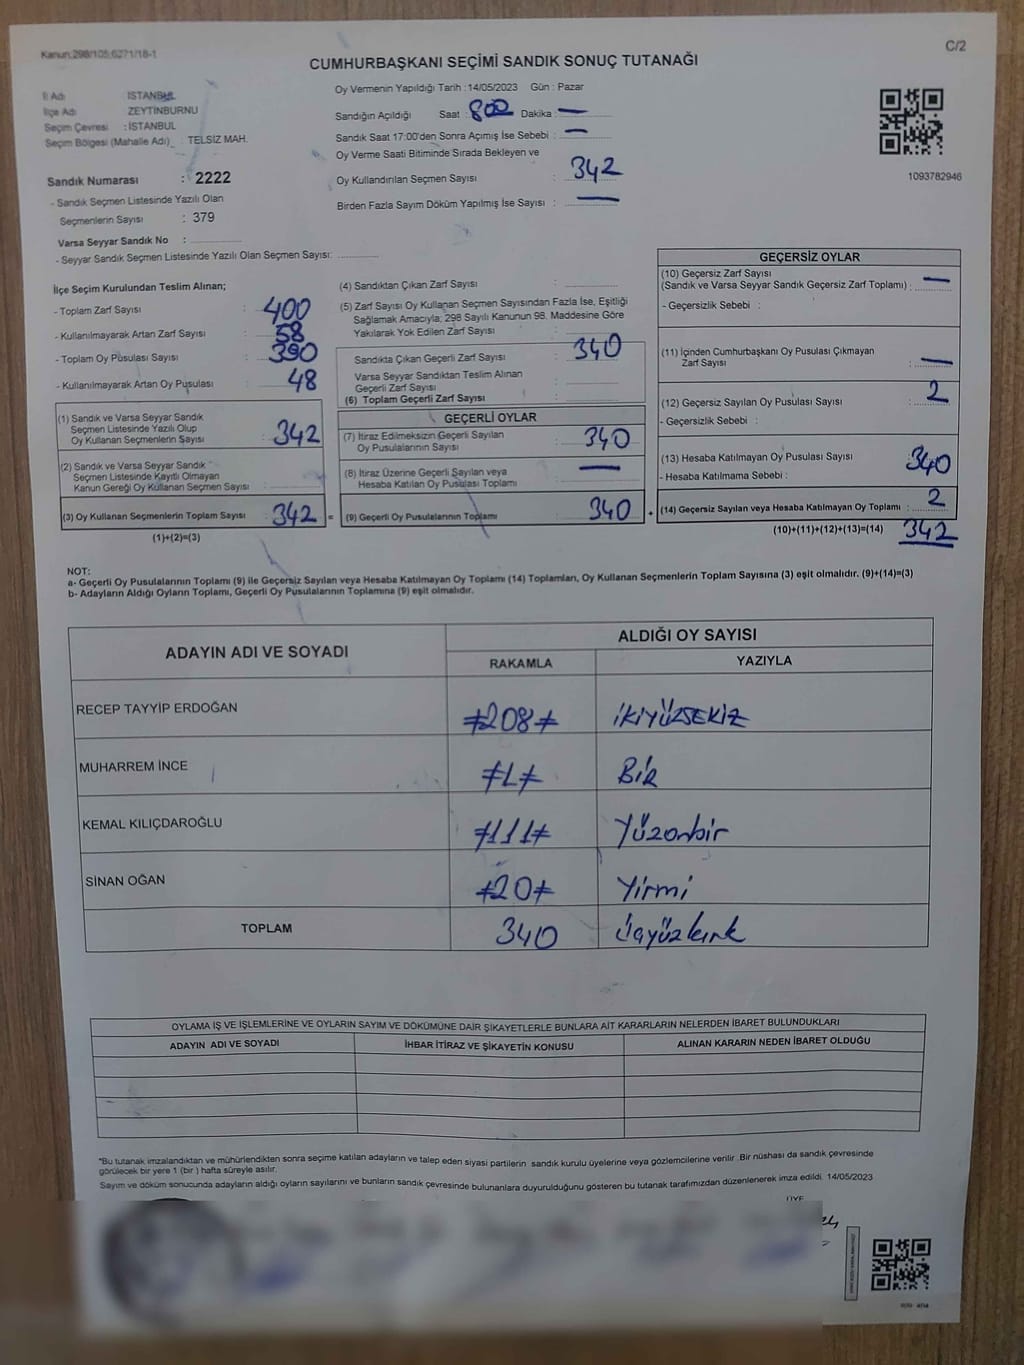 Kanun:298/105;6271/18-1
C/2
CUMHURBAŞKANI SEÇİMİ SANDIK SONUÇ TUTANAĞI
İl Adı : İSTANBUL
İlçe Adı : ZEYTİNBURNU
Seçim Çevresi : İSTANBUL
Seçim Bölgesi (Mahalle Adı) : TELSİZ MAH.
Sandık Numarası : 2222
- Sandık Seçmen Listesinde Yazılı Olan
Seçmenlerin Sayısı : 379
Varsa Seyyar Sandık No :
- Seyyar Sandık Seçmen Listesinde Yazılı Olan Seçmen Sayısı:
Oy Vermenin Yapıldığı Tarih : 14/05/2023 Gün : Pazar
Sandığın Açıldığı Saat : 800 Dakika : —
Sandık Saat 17:00'den Sonra Açımış İse Sebebi : —
Oy Verme Saati Bitiminde Sırada Bekleyen ve
Oy Kullandırılan Seçmen Sayısı : 342
Birden Fazla Sayım Döküm Yapılmış İse Sayısı : —
1093782946
İlçe Seçim Kurulundan Teslim Alınan;
- Toplam Zarf Sayısı : 400
- Kullanılmayarak Artan Zarf Sayısı : 58
- Toplam Oy Pusulası Sayısı : 390
- Kullanılmayarak Artan Oy Pusulası : 48
(1) Sandık ve Varsa Seyyar Sandık
Seçmen Listesinde Yazılı Olup
Oy Kullanan Seçmenlerin Sayısı : 342
(2) Sandık ve Varsa Seyyar Sandık
Seçmen Listesinde Kayıtlı Olmayan
Kanun Gereği Oy Kullanan Seçmen Sayısı :
(3) Oy Kullanan Seçmenlerin Toplam Sayısı : 342 =
(1)+(2)=(3)
(4) Sandıktan Çıkan Zarf Sayısı :
(5) Zarf Sayısı Oy Kullanan Seçmen Sayısından Fazla İse, Eşitliği
Sağlamak Amacıyla; 298 Sayılı Kanunun 98. Maddesine Göre
Yakılarak Yok Edilen Zarf Sayısı :
Sandıkta Çıkan Geçerli Zarf Sayısı : 340
Varsa Seyyar Sandıktan Teslim Alınan
Geçerli Zarf Sayısı :
(6) Toplam Geçerli Zarf Sayısı :
GEÇERLİ OYLAR
(7) İtiraz Edilmeksizin Geçerli Sayılan
Oy Pusulalarının Sayısı : 340
(8) İtiraz Üzerine Geçerli Sayılan veya
Hesaba Katılan Oy Pusulası Toplamı : —
(9) Geçerli Oy Pusulalarının Toplamı : 340 +
GEÇERSİZ OYLAR
(10) Geçersiz Zarf Sayısı
(Sandık ve Varsa Seyyar Sandık Geçersiz Zarf Toplamı) : —
- Geçersizlik Sebebi :
(11) İçinden Cumhurbaşkanı Oy Pusulası Çıkmayan
Zarf Sayısı : —
(12) Geçersiz Sayılan Oy Pusulası Sayısı : 2
- Geçersizlik Sebebi :
(13) Hesaba Katılmayan Oy Pusulası Sayısı : 340
- Hesaba Katılmama Sebebi :
(14) Geçersiz Sayılan veya Hesaba Katılmayan Oy Toplamı : 2
(10)+(11)+(12)+(13)=(14) 342
NOT:
a- Geçerli Oy Pusulalarının Toplamı (9) ile Geçersiz Sayılan veya Hesaba Katılmayan Oy Toplamı (14) Toplamları, Oy Kullanan Seçmenlerin Toplam Sayısına (3) eşit olmalıdır. (9)+(14)=(3)
b- Adayların Aldığı Oyların Toplamı, Geçerli Oy Pusulalarının Toplamına (9) eşit olmalıdır.
ADAYIN ADI VE SOYADI
ALDIĞI OY SAYISI
RAKAMLA YAZIYLA
RECEP TAYYİP ERDOĞAN ≠208≠ İKİYÜZSEKİZ
MUHARREM İNCE ≠1≠ Bir
KEMAL KILIÇDAROĞLU ≠111≠ Yüzonbir
SİNAN OĞAN ≠20≠ Yirmi
TOPLAM 340 Üçyüzkırk
OYLAMA İŞ VE İŞLEMLERİNE VE OYLARIN SAYIM VE DÖKÜMÜNE DAİR ŞİKAYETLERLE BUNLARA AİT KARARLARIN NELERDEN İBARET BULUNDUKLARI
ADAYIN ADI VE SOYADI İHBAR İTİRAZ VE ŞİKAYETİN KONUSU ALINAN KARARIN NEDEN İBARET OLDUĞU
*Bu tutanak imzalandıktan ve mühürlendikten sonra seçime katılan adayların ve talep eden siyasi partilerin sandık kurulu üyelerine veya gözlemcilerine verilir. Bir nüshası da sandık çevresinde
görülecek bir yere 1 (bir) hafta süreyle asılır.
Sayım ve döküm sonucunda adayların aldığı oyların sayılarını ve bunların sandık çevresinde bulunanlara duyurulduğunu gösteren bu tutanak tarafımızdan düzenlenerek imza edildi. 14/05/2023
ÜYE